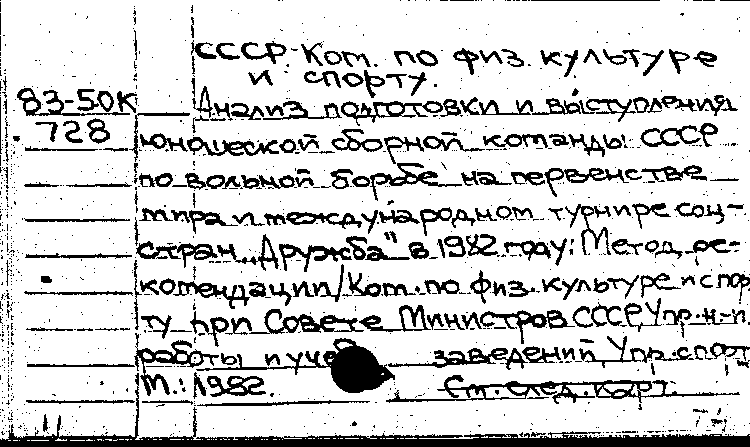 СССР. Ком. по физ. культуре
и спорту.
83-50К Анализ подготовки и выступления
728 юношеской сборной команды СССР
по вольной борьбе на первенстве
мира и международном турнире соц-
стран „Дружба" в 1982 году: Метод. ре-
комендации/Ком. по физ. культуре и спор
ту при Совете Министров СССР, Упр. н.-и.
работы и учеб заведений, Упр. спорт
М.: 1982. См. след. карт.